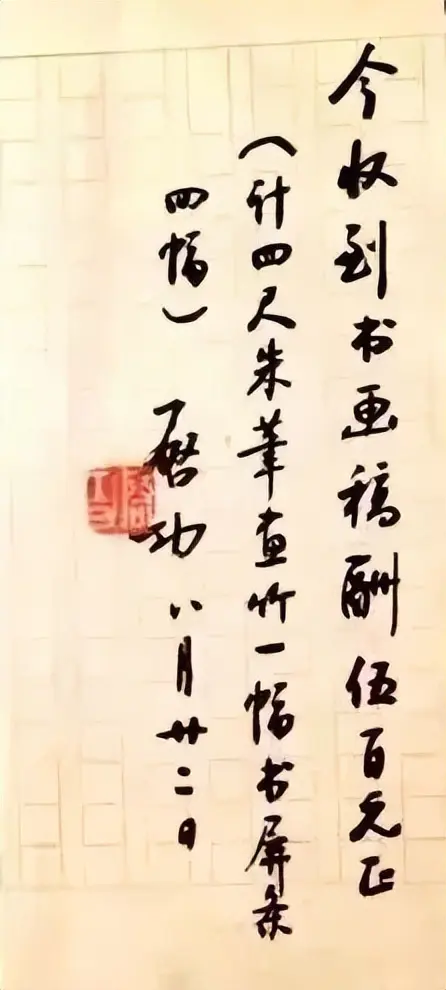 今收到书画稿酬伍百元正
（计四尺朱筆畫竹一幅书屏条
四幅）
啓功 八月廿二日
啓功